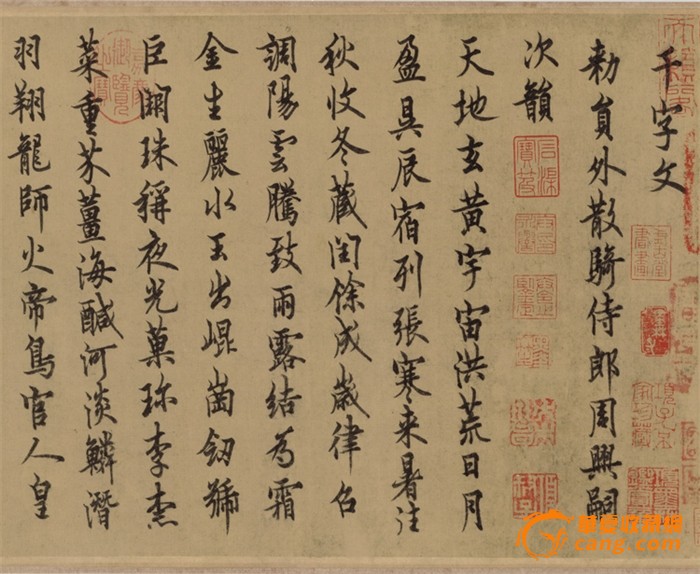 千字文
勅員外散騎侍郎周興嗣
次韻
天地玄黃宇宙洪荒日月
盈昃辰宿列張寒来暑往
秋收冬藏閏餘成歲律召
調陽雲騰致雨露結為霜
金生麗水玉出崐崗劒號
巨闕珠稱夜光菓珎李柰
菜重芥薑海鹹河淡鱗潛
羽翔龍師火帝鳥官人皇
華夏收藏網
cang.com